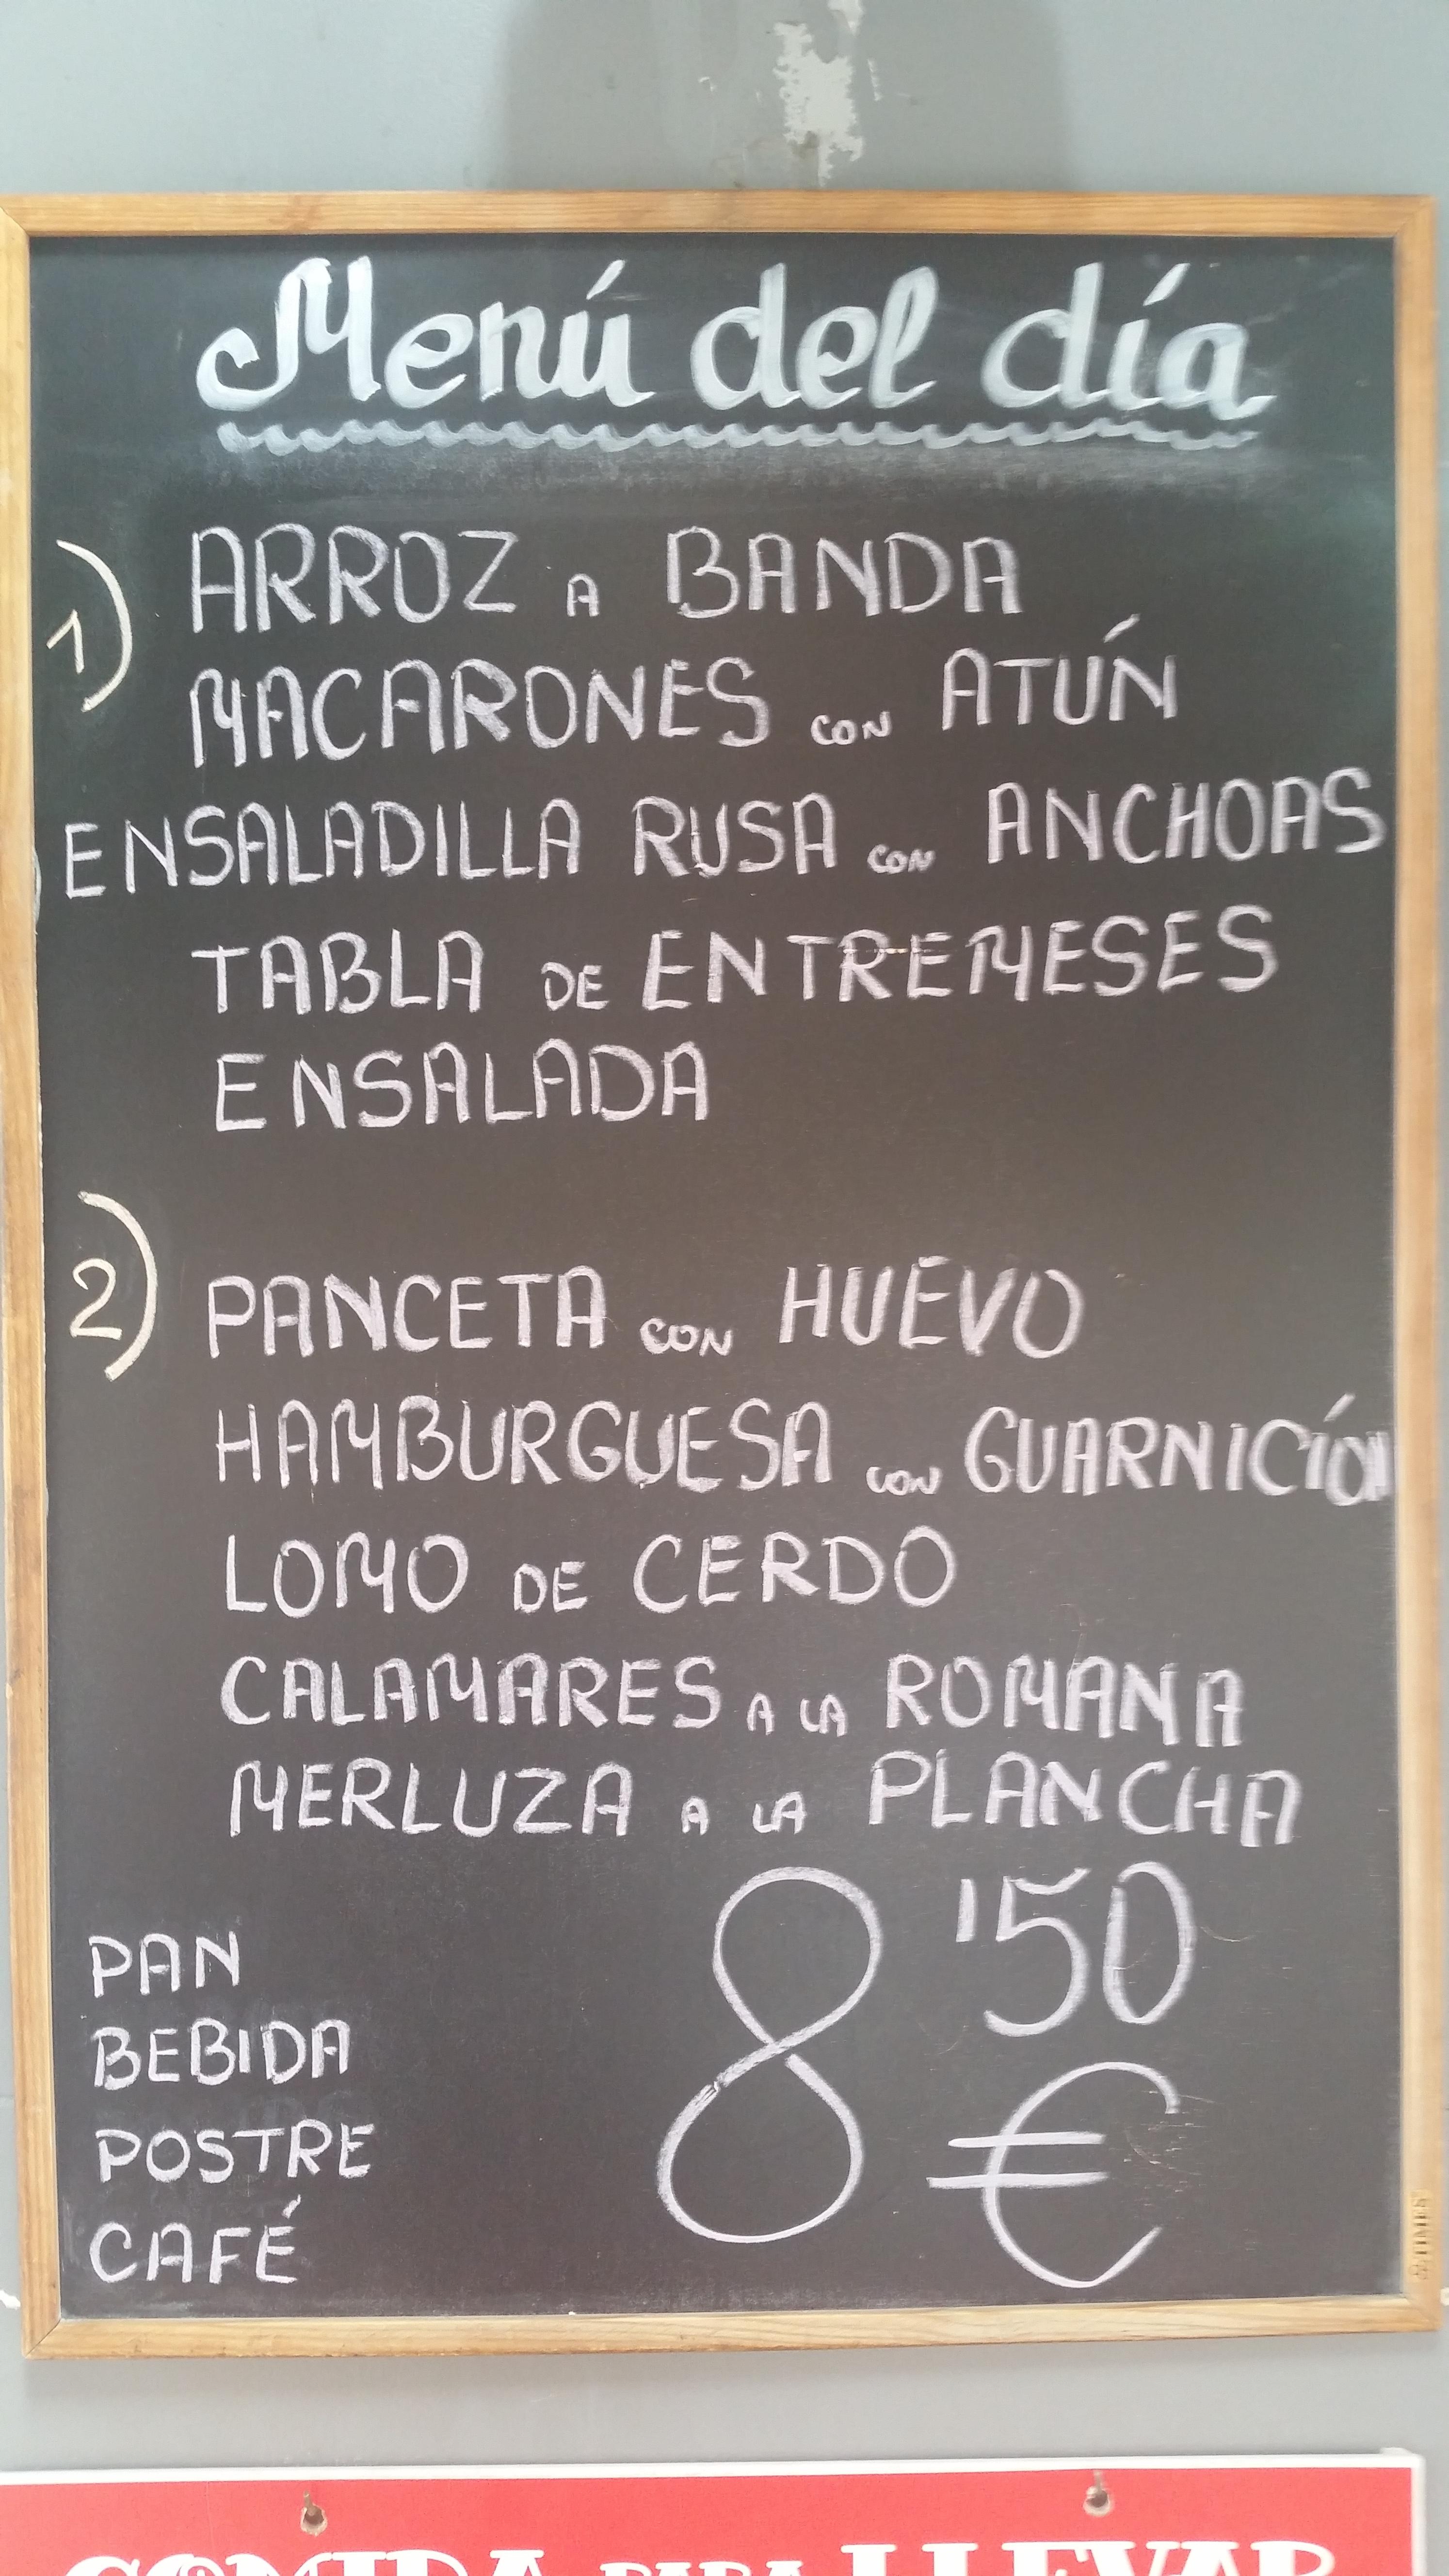 Menú del día
1) ARROZ A BANDA
MACARONES CON ATÚN
ENSALADILLA RUSA CON ANCHOAS
TABLA DE ENTREMESES
ENSALADA
2) PANCETA CON HUEVO
HAMBURGUESA CON GUARNICÍON
LOMO DE CERDO
CALAMARES A LA ROMANA
MERLUZA A LA PLANCHA
8'50 €
PAN
BEBIDA
POSTRE
CAFÉ
COMIDA PARA LLEVAR